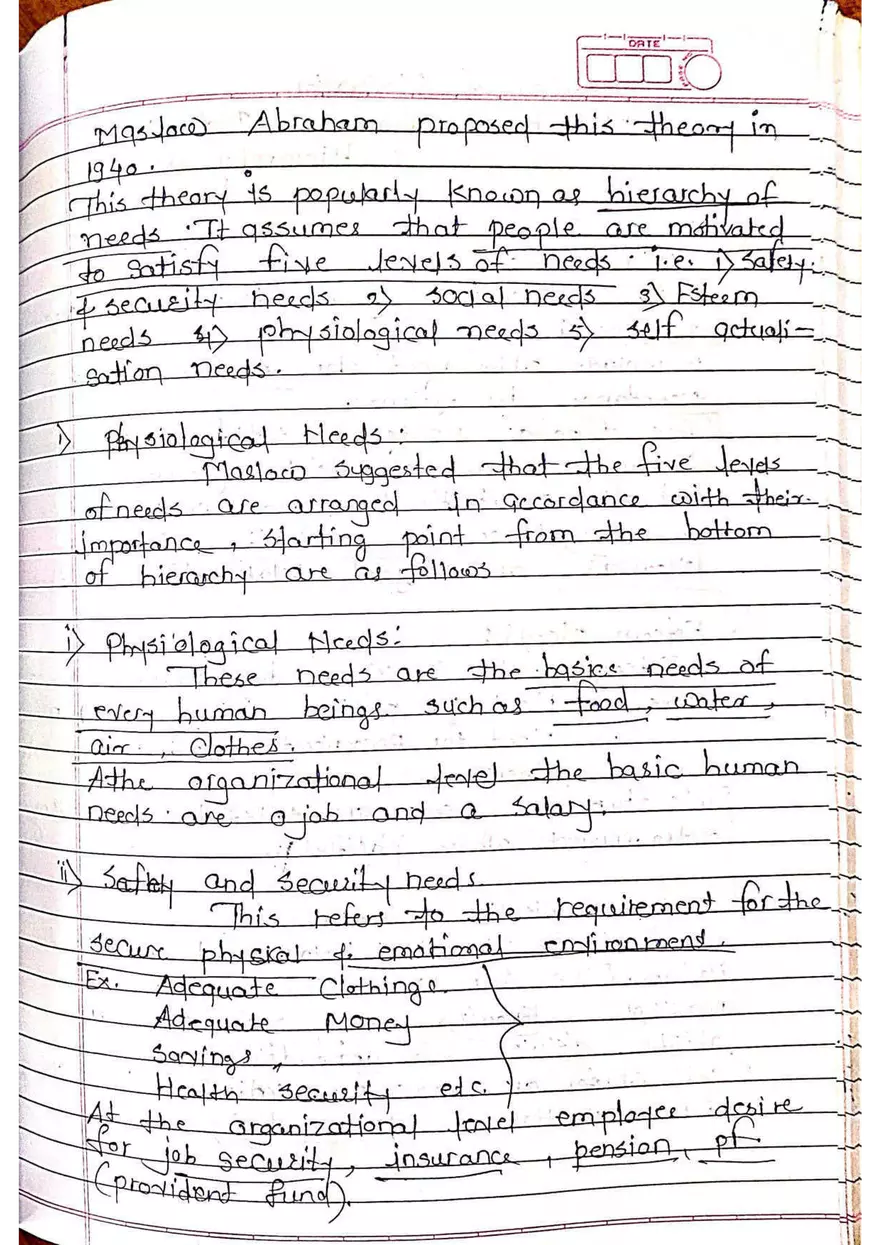 DATE
Maslow Abraham proposed this theory in
1940.
This theory is popularly known as hierarchy of
needs. It assumes that people are motivated
to satisfy five levels of needs. i.e. 1) Safety
& security needs 2) social needs 3) Esteem
needs 4) physiological needs 5) self actuali-
sation needs.
i) Physiological Needs:
Maslow suggested that the five levels
of needs are arranged in accordance with their
importance, starting point from the bottom
of hierarchy are as follows
i) Physiological Needs:
These needs are the basics needs of
every human beings such as food, water,
air, clothes.
Athe organizational level the basic human
needs are a job and a salary.
ii) Safety and security needs
This refers to the requirement for the
secure physical & emotional environment.
Ex. Adequate Clothing
Adequate Money
Savings,
Health security etc.
At the organizational level employee desire
for job security, insurance, pension, pf
(provident fund).